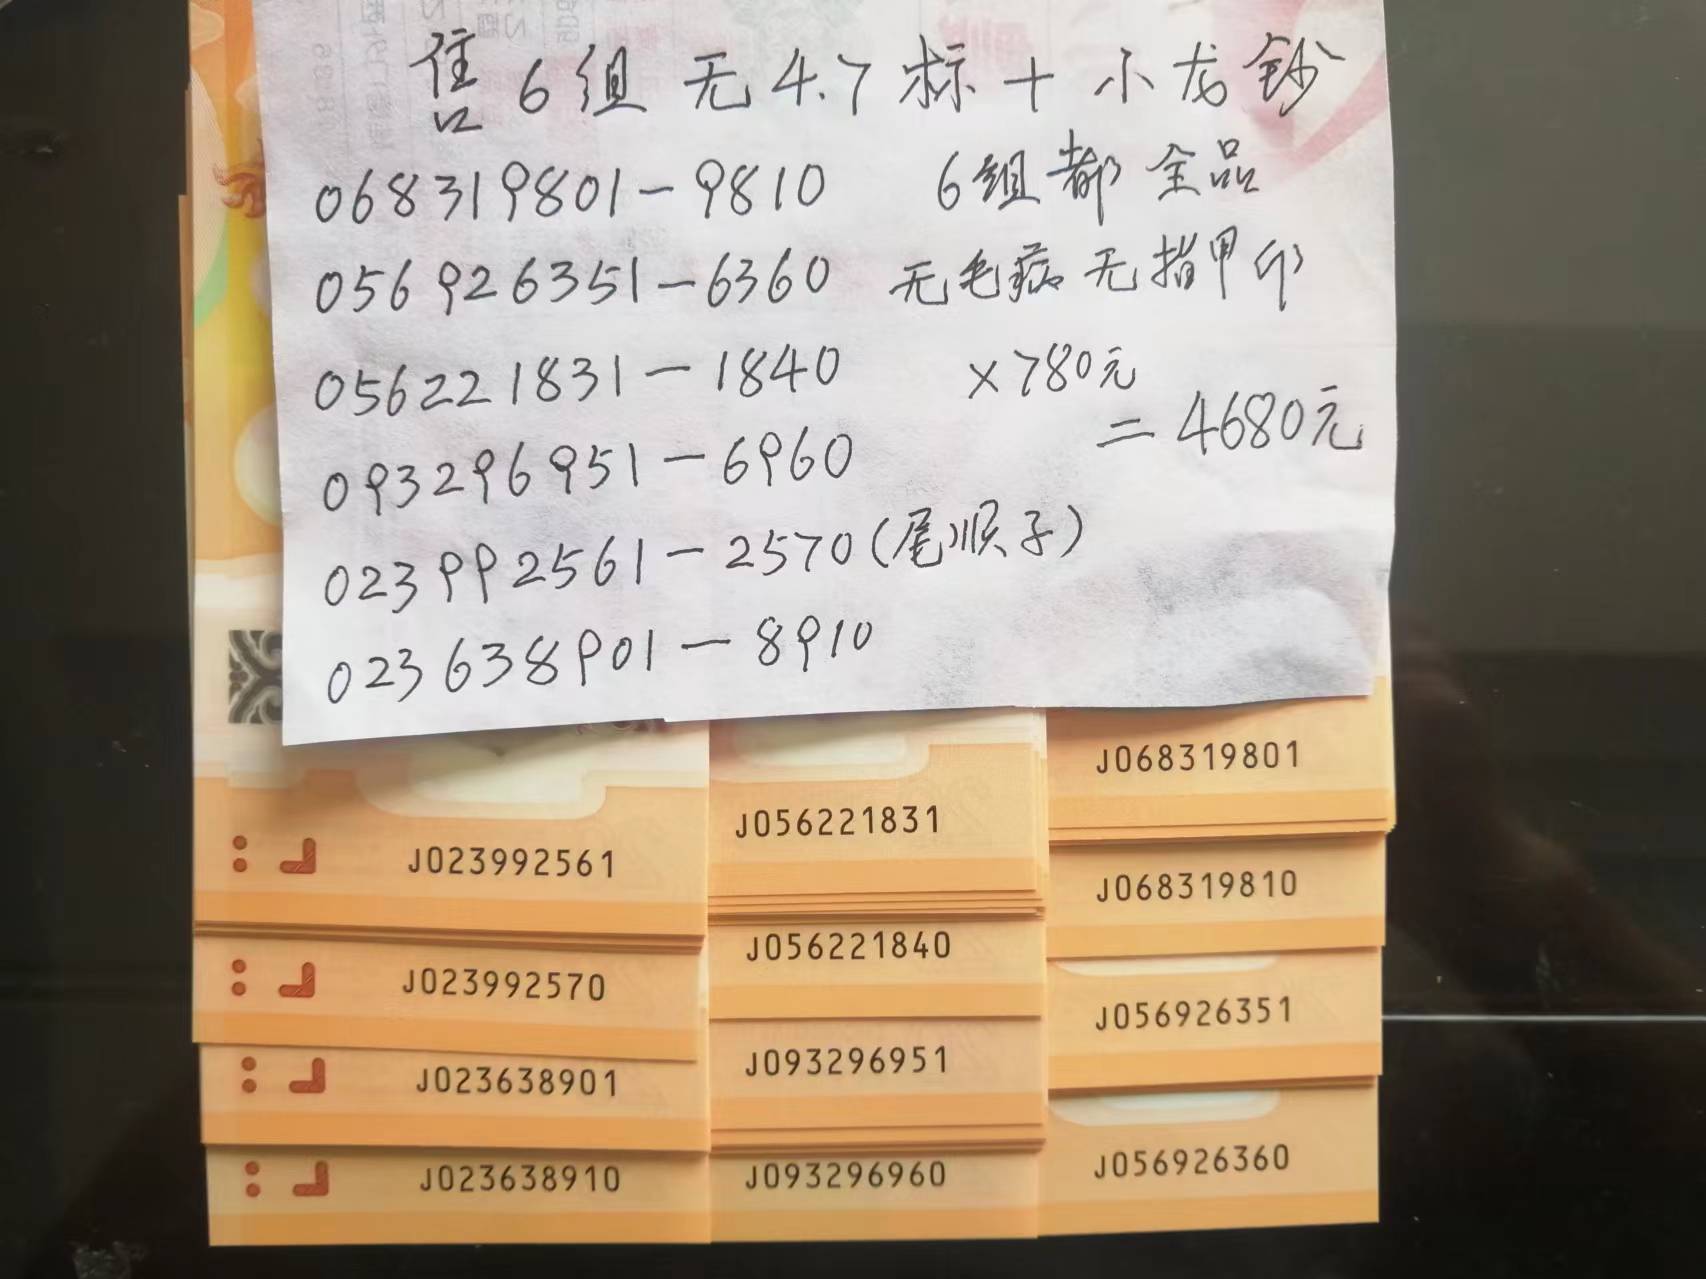 售6组无4.7标十小龙钞
068319801-9810 6组都全品
056926351-6360 无毛病无指甲印
056221831-1840 ×780元
=4680元
093296951-6960
023992561-2570(尾顺子)
023638901-8910
J023992561
J023992570
J023638901
J023638910
J056221831
J056221840
J093296951
J093296960
J068319801
J068319810
J056926351
J056926360